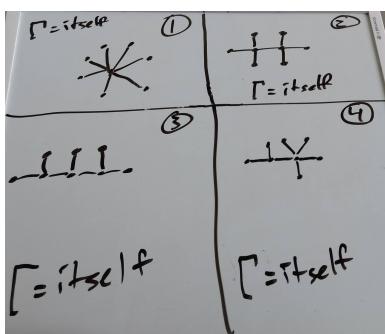 Γ=itself ①
②
Γ=itself
③
Γ=itself
④
Γ=itself